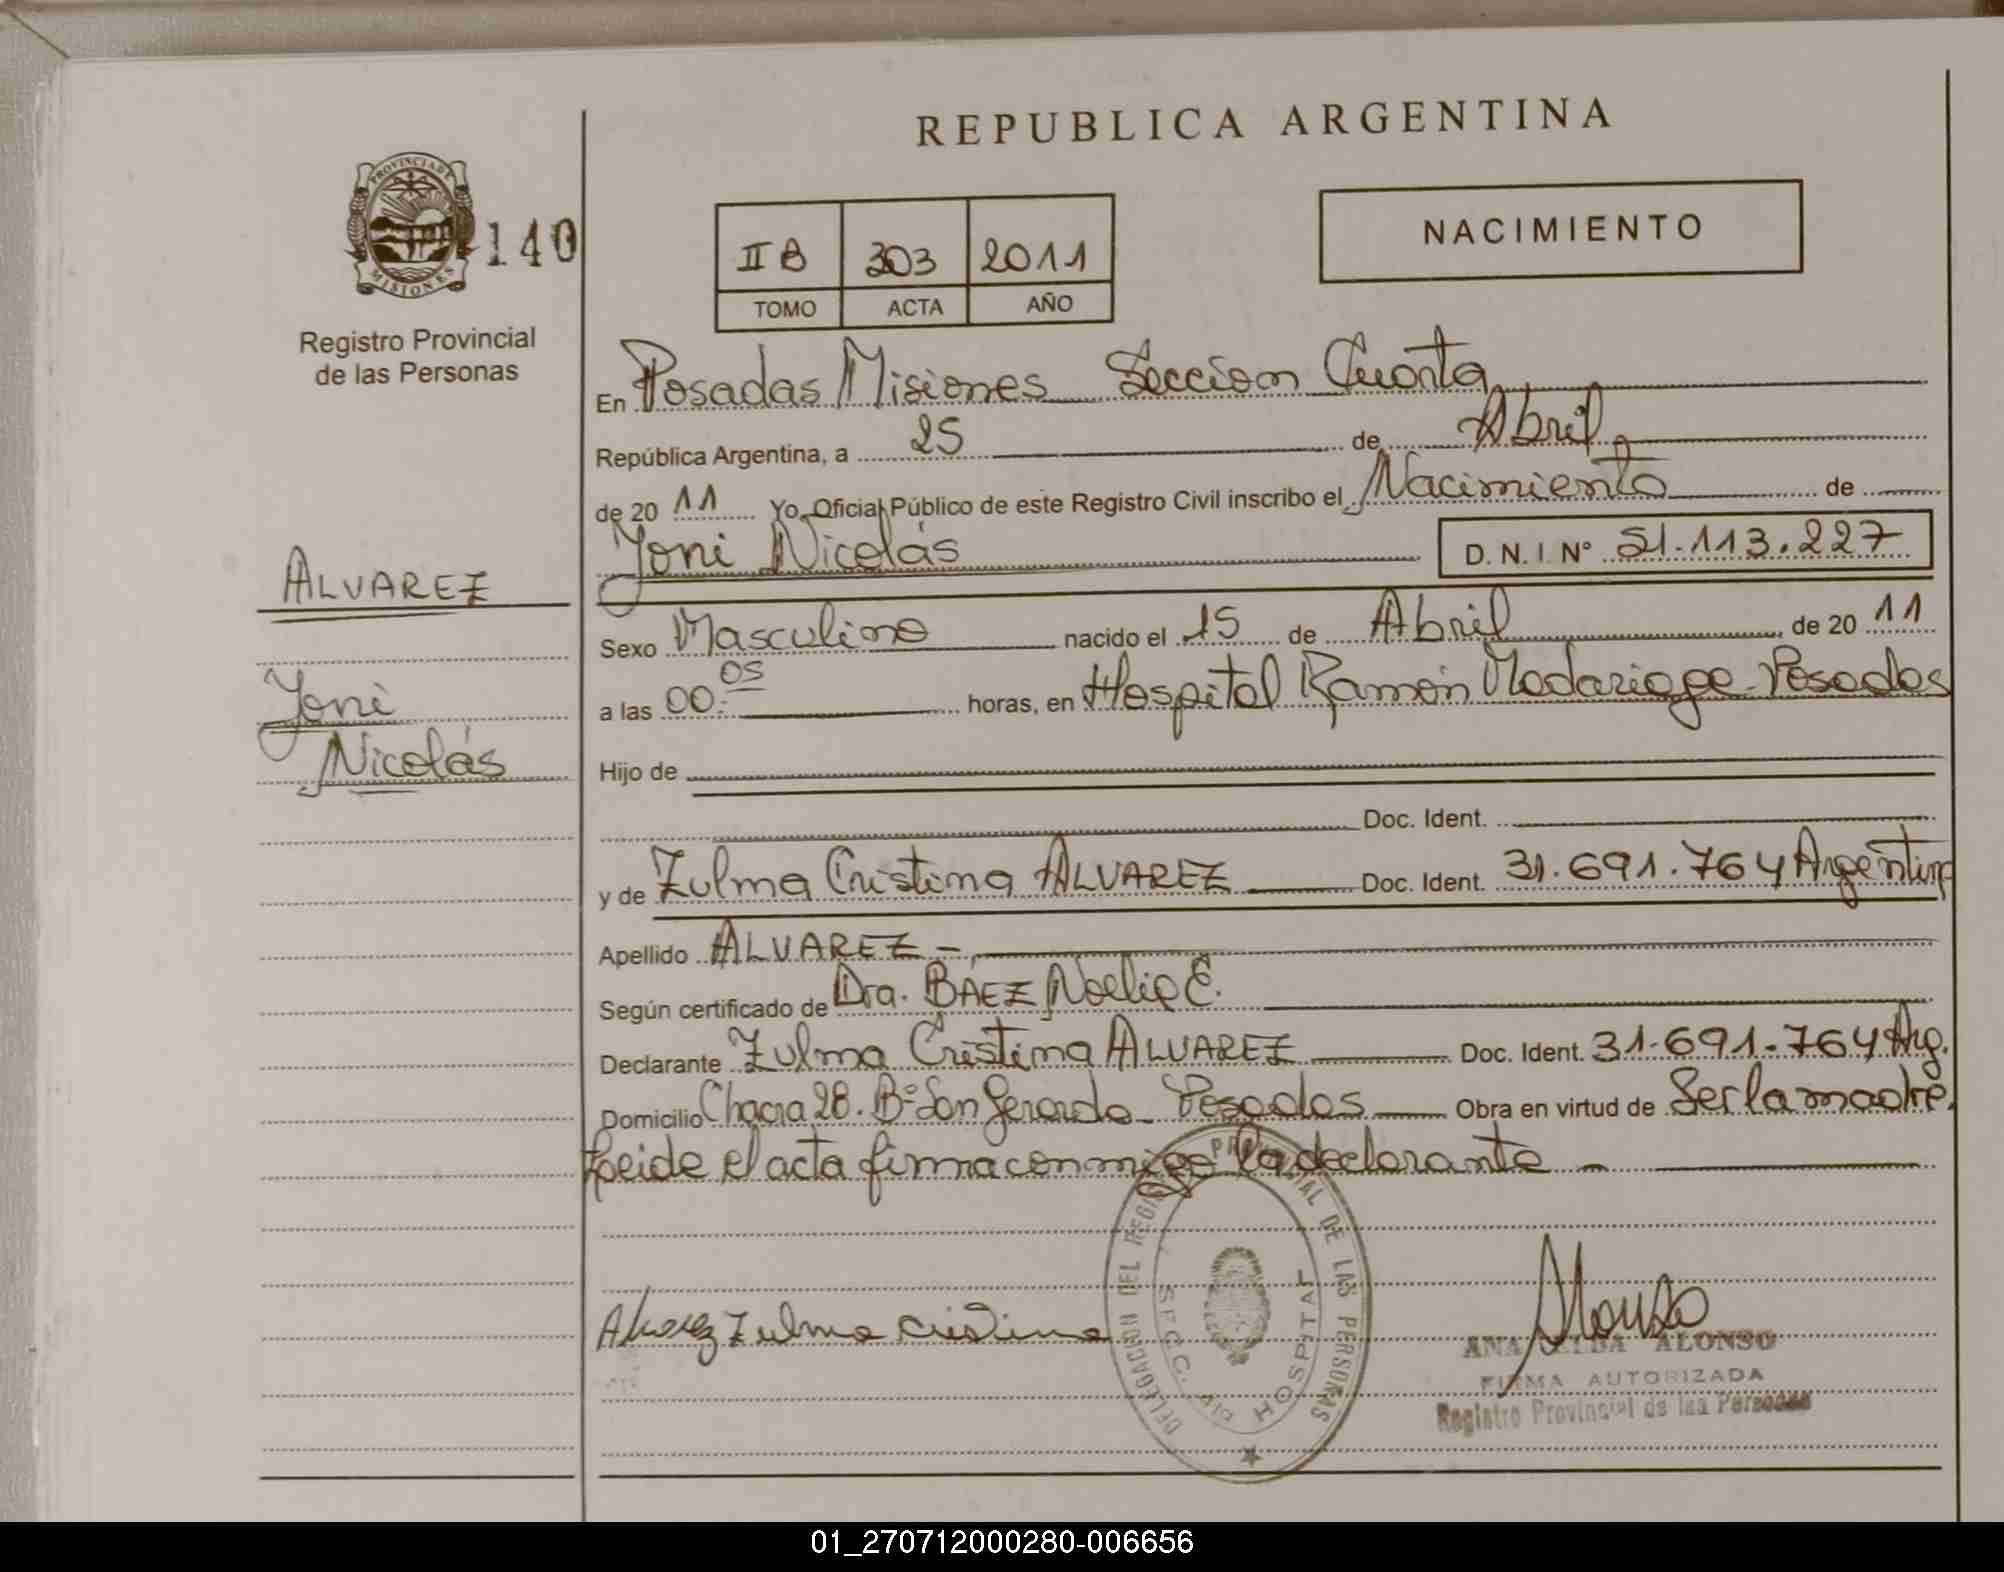 REPUBLICA ARGENTINA
PROVINCIA DE
MISIONES
140
Registro Provincial
de las Personas
II B 303 2011
TOMO ACTA AÑO
NACIMIENTO
En Posadas Misiones Seccion Cuarta
República Argentina, a 25 de Abril
de 20 11 Yo, Oficial Público de este Registro Civil inscribo el Nacimiento de
Yoni Nicolás D. N. I. N° 51.113.227
ALVAREZ
Yoni
Nicolás
Sexo Masculino nacido el 15 de Abril de 20 11
a las 00:05 horas, en Hospital Ramón Madariaga - Posadas
Hijo de
Doc. Ident.
y de Zulma Cristina ALVAREZ Doc. Ident. 31.691.764 Argentina
Apellido ALVAREZ -
Según certificado de Dra. BAEZ Noelia E.
Declarante Zulma Cristina ALVAREZ Doc. Ident. 31.691.764 Arg.
Domicilio Chacra 28. B° San Gerardo - Posadas Obra en virtud de Ser la madre.
Leide el acta firma conmigo la declarante -
Alvarez Zulma Cristina
DELEGACION DEL REGISTRO PROVINCIAL DE LAS PERSONAS
SECC. HOSPITAL
Alonso
ANA ALONSO
FIRMA AUTORIZADA
Registro Provincial de las Personas
01_270712000280-006656